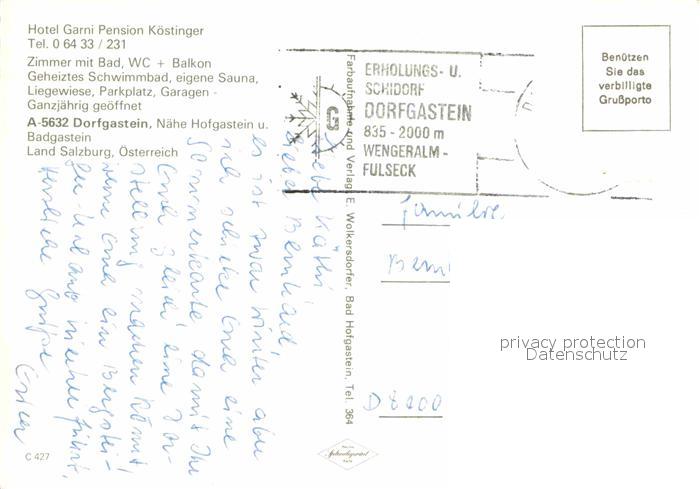 Hotel Garni Pension Köstinger
Tel. 0 64 33 / 231
Zimmer mit Bad, WC + Balkon
Geheiztes Schwimmbad, eigene Sauna,
Liegewiese, Parkplatz, Garagen -
Ganzjährig geöffnet
A-5632 Dorfgastein, Nähe Hofgastein u.
Badgastein
Land Salzburg, Österreich
ERHOLUNGS- U.
SCHIDORF
DORFGASTEIN
835 - 2000 m
WENGERALM -
FULSECK
Benützen
Sie das
verbilligte
Grußporto
Farbaufnahme und Verlag E. Wolkersdorfer, Bad Hofgastein, Tel. 364
Liebe Käthi
Lieber Bernhard
es ist zwar Winter aber
ich schicke Euch eine
Sommerkarte damit Ihr
Euch gleich eine Vor-
stellung machen könnt
wenn Euch ein Bergstei-
ger-Urlaub hierher führt.
Herzliche Grüße
Familie
D 8200
privacy protection
Datenschutz
C 427